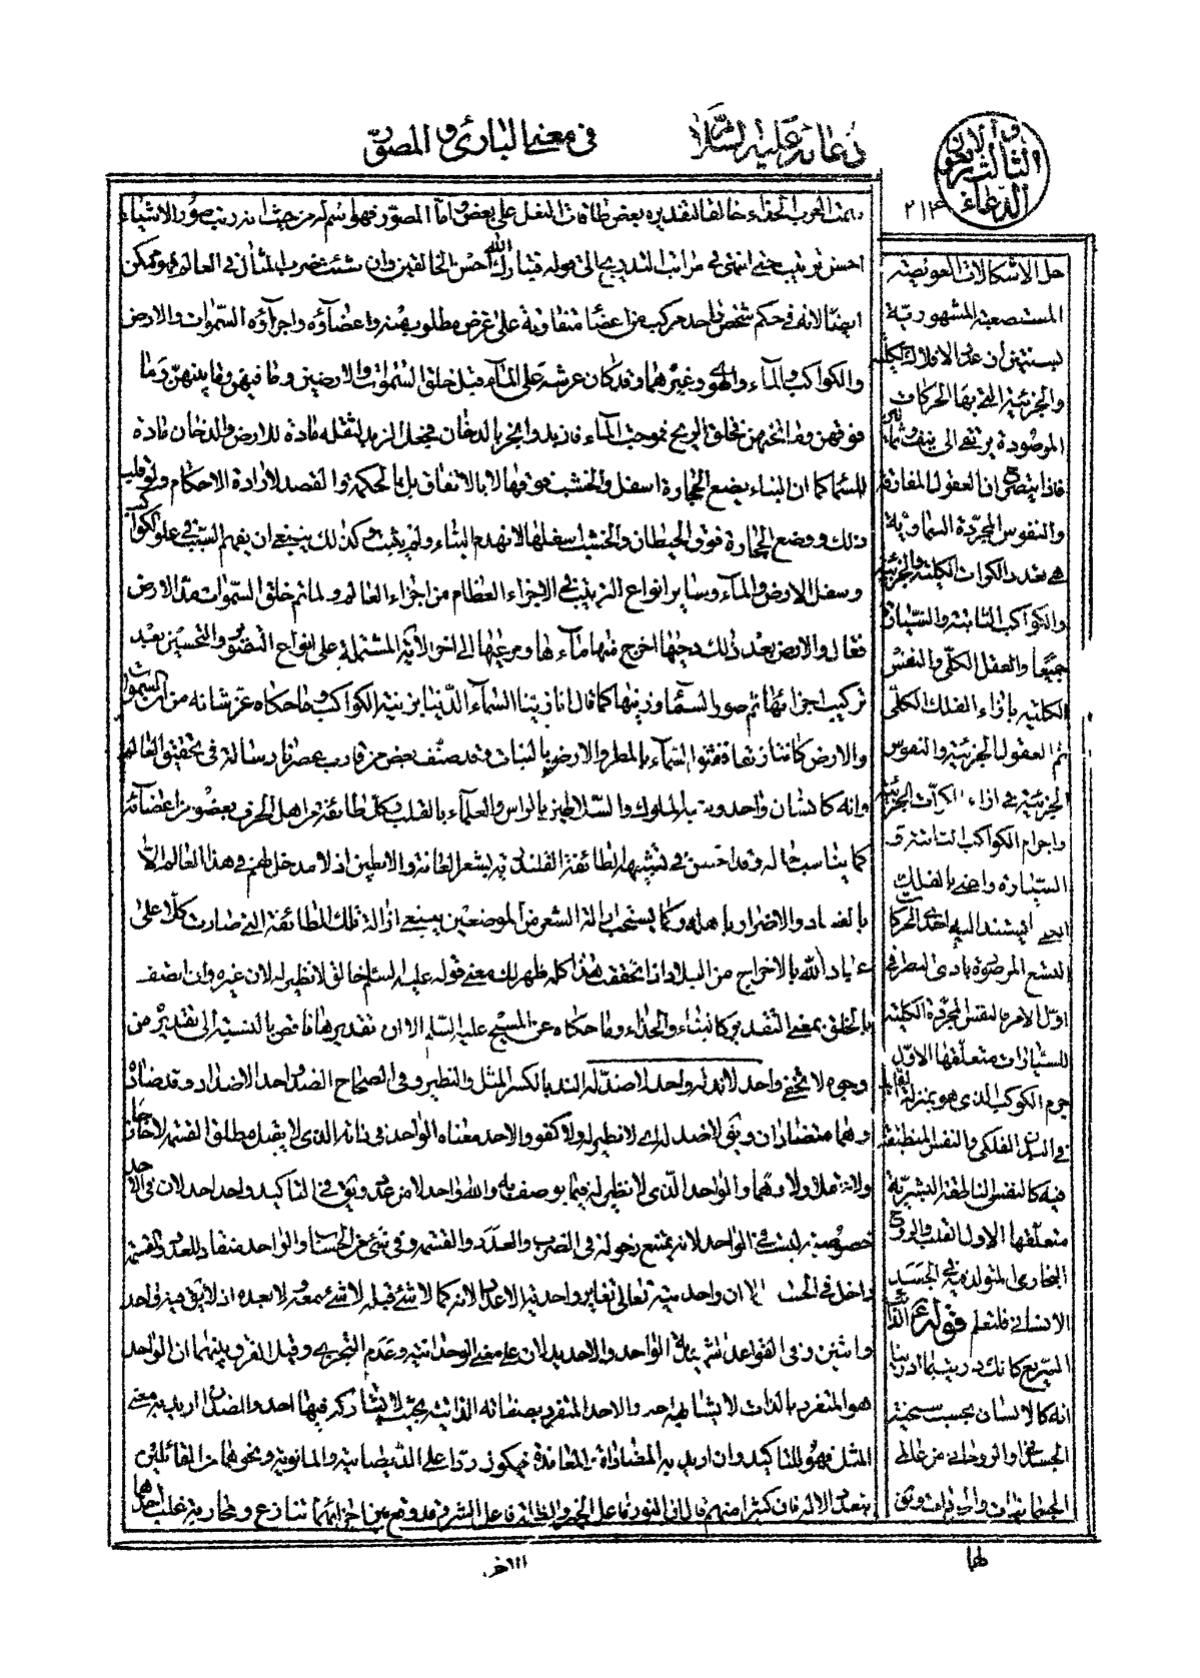 في معنى البارئ والمصور
دعائه عليه السلام
الثالث والاربعون
الدعاء
٢١٣
العرب الحذاء خالقا لتقديره بعض طاقات النعل على بعض واما المصور فهو اسم له من حيث انه رتب صور الاشياء
احسن ترتيب حتى انتهى في مراتب التدريج الى قوله فتبارك الله احسن الخالقين وان شئت ضرب المثال في العالم فهو ممكن
ايضا لانه في حكم شخص واحد مركب من اعضاء متفاوتة على غرض مطلوب منه واعضاؤه واجزاؤه السموات والارض
والكواكب والماء والهواء وغيرهما وقد كان عرشه على الماء قبل خلق السموات والارضين وما فيهن وما بينهن وما
فوقهن وما تحتهن فخلق الريح فموجت الماء فازبد وانجر بالدخان فجعل الزبد لثقله مادة للارض والدخان مادة
للسماء كما ان البناء يضع الحجارة اسفل والخشب فوقها لا بالاتفاق بل بالحكمة والقصد لارادة الاحكام ولو قلب
ذلك ووضع الحجارة فوق الحيطان والخشب اسفلها لانهدم البناء ولم يثبت كذلك ينبغي ان يفهم السبب في علو الكواكب
وسفل الارض والماء وساير انواع الترتيب في الاجزاء العظام من اجزاء العالم ولما تم خلق السموات مد الارض
فقال والارض بعد ذلك دحيها اخرج منها ماءها ومرعيها الى اخر الآية المشتملة على انواع التصوير والتحسين بعد
تركيب اجزائها ثم صور السماء وزينها كما قال انا زينا السماء الدنيا بزينة الكواكب وما حكاه عز شانه من ان السموات
والارض كانتا رتقا ففتق السماء بالمطر والارض بالنبات وقد صنف بعض من قارب عصرنا رسالة في تحقيق العالم
وانه كانسان واحد وشبه الملوك والسلاطين بالراس والعلماء بالقلب وكل طائفة من اهل الحرف بعضو من اعضائه
كما يناسب حاله وقد احسن في تشبيهه لطائفة القلندرية بشعر العانة والابطين اذ لا مدخل لهم في هذا العالم الا
بالفساد والاضرار باهله وكما يستحب ازالة الشعر من الموضعين ينبغي ازالة تلك الطائفة التي صارت كلا على
عباد الله بالاخراج من البلاد اذا تحققت هذا كله ظهر لك معنى قوله عليه السلام خالق لا نظير له لان غيره وان اتصف
بالخلق بمعنى التقدير كالبناء والحذاء وما حكاه عن المسيح عليه السلام الا ان تقديرها ناقص بالنسبة الى تقديره من
وجوه لا تخفى واحد لا ند له واحد لا ضد له الند بالكسر المثل والنظير وفي الصحاح الضد واحد الاضداد وقد ضاده
وهما متضادان ويق لا ضد له اي لا نظير له ولا كفو والاحد معناه الواحد في ذاته الذي لا يقبل مطلق القسمة لا خارجا
ولا عقلا ولا وهما والواحد الذي لا نظير له فيما يوصف به والله واحد لا من عدد ويق في التاكيد واحد احد لان في الاحد
خصوصية ليست في الواحد لانه يمتنع دخوله في الضرب والعدد والقسمة وفي شئ من الحساب والواحد منقاد للعدد والقسمة
داخل في الحساب الا ان واحديته تعالى تغاير واحدية الاعداد لانه كما لا شئ قبله لا شئ معه ولا بعده اذ لا يق فيه واحد
واثنين وفي القواعد لشريك الواحد والاحد يدلان على معنى الوحدانية وعدم التجزي وقيل الفرق بينهما ان الواحد
هو المنفرد بالذات لا يشابهه احد والاحد المتفرد بصفاته الذاتية بحيث لا يشاركه فيها احد والضد ان اريد به معنى
المثل فهو للتاكيد وان اريد به المضادة المعاندة فيكون ردا على الديصانية والمانوية ونحوهما من القائلين
بتعدد الاله فان كثيرا منهم قال ان النور فاعل الخير والظلمة فاعل الشر وقد وقع بين اجزائهما تنازع ومحاربة غلب احدهما
حل الاشكالات العويصة
المستصعبة المشهورية
ليستبين ان عدد الافلاك الكلية
والجزئية التي بها الحركات
المرصودة يرتقى الى نيف وثمانين
فاذا يتصرح ان العقول المفارقة
والنفوس المجردة السماوية
هي بعدد الكرات الكلية والجزئية
والكواكب الثابتة والسيارة
جميعا والعقل الكلي والنفس
الكلية بازاء الفلك الكلي
ثم العقول الجزئية والنفوس
الجزئية في ازاء الكرات الجزئية
واجرام الكواكب الثابتة و
السيارة واعني بالفلك
الكلي ما يستند اليه احدى الحركات
التسع المرصودة بادي النظر في
اول الامر بالنفس المجردة الكلية
للسيارات متعلقها الاول
جرم الكوكب الذي هو بمنزلة القلب
في البدن الفلكي والنفس المنطبعة
فيه كالنفس الناطقة البشرية
متعلقها الاول القلب والروح
البخاري المتولد منه في الجسد
الانساني فلتعلم قوله ع الدائب
السريع كانك دريت بما ادريناك
انه كالانسان بحسب سنخيته
الجسداني والروحاني من عالمي
الجسمانيات
لها
الاخر